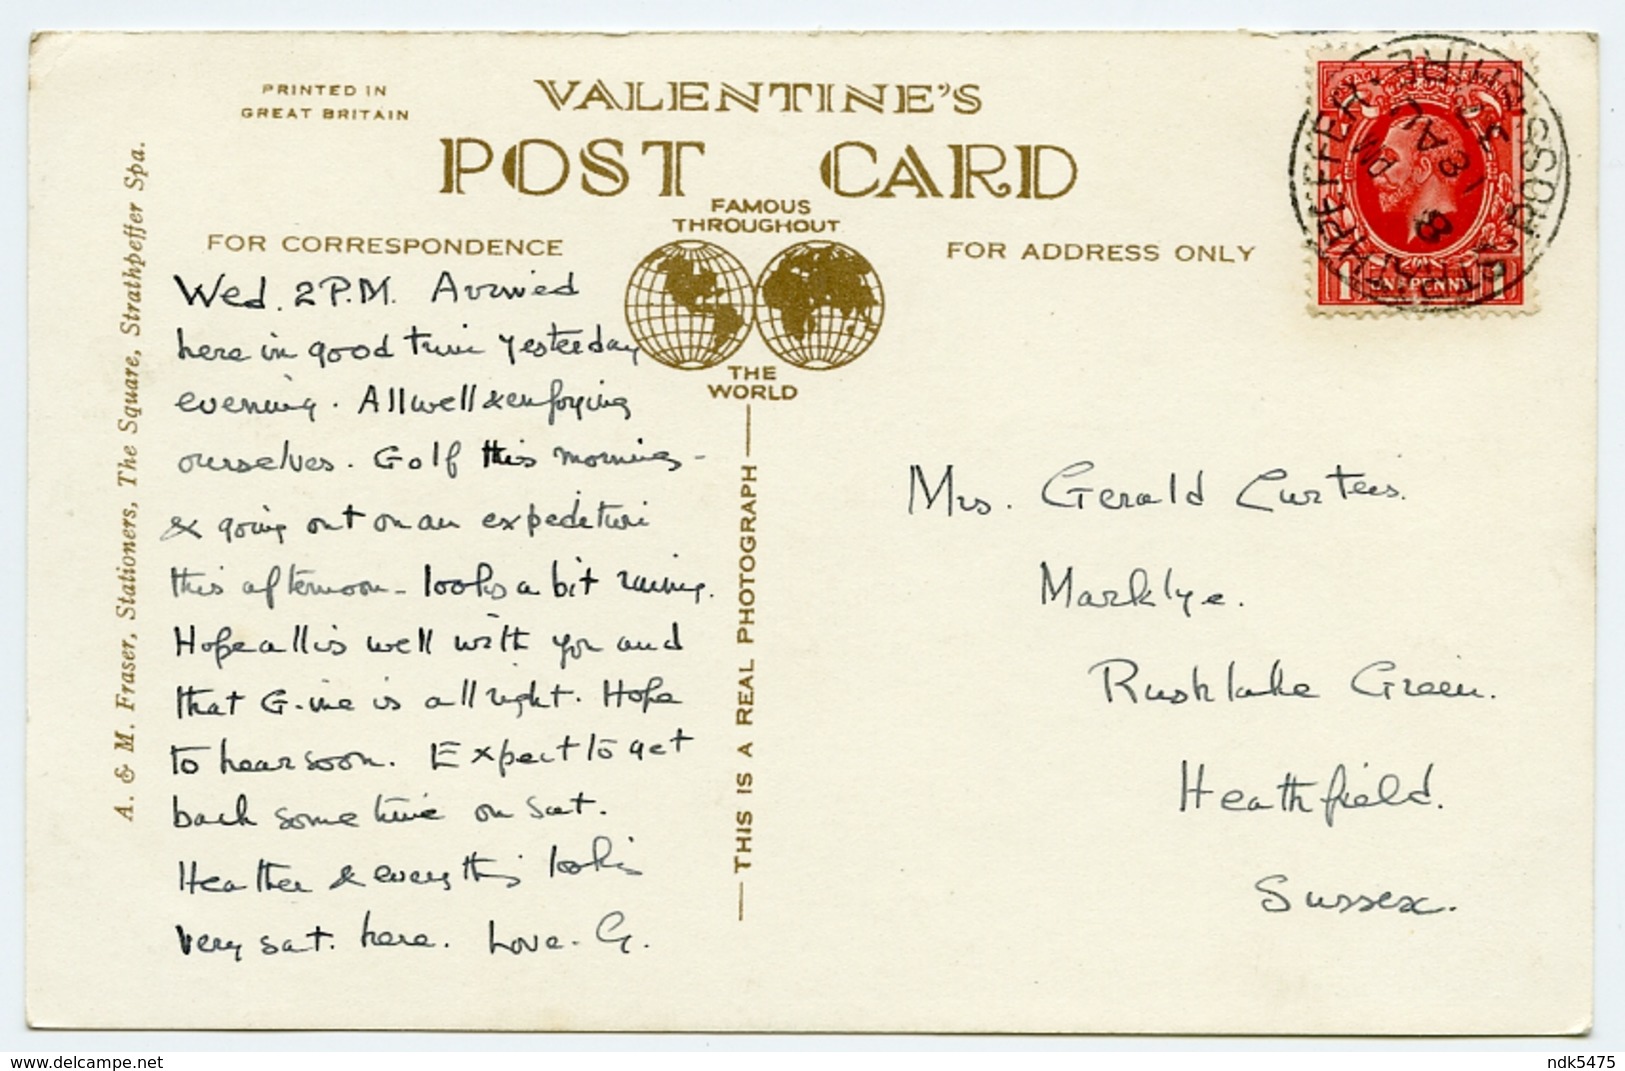 PRINTED IN
GREAT BRITAIN
VALENTINE'S
POST CARD
FAMOUS
THROUGHOUT
THE
WORLD
FOR CORRESPONDENCE
FOR ADDRESS ONLY
A. & M. Fraser, Stationers, The Square, Strathpeffer Spa.
THIS IS A REAL PHOTOGRAPH
Wed. 2 P.M. Arrived
here in good time yesterday
evening. All well & enjoying
ourselves. Golf this morning -
& going out on an expedition
this afternoon - looks a bit rainy.
Hope all is well with you and
that G- is all right. Hope
to hear soon. Expect to get
back some time on Sat.
Heather & everything looking
very sat. here. Love. G.
Mrs. Gerald Curteis.
Marklye.
Rushlake Green.
Heathfield.
Sussex.
STRATHPEFFER ROSS-SHIRE
8 PM
18 AU
ONE PENNY
www.delcampe.net
ndk5475